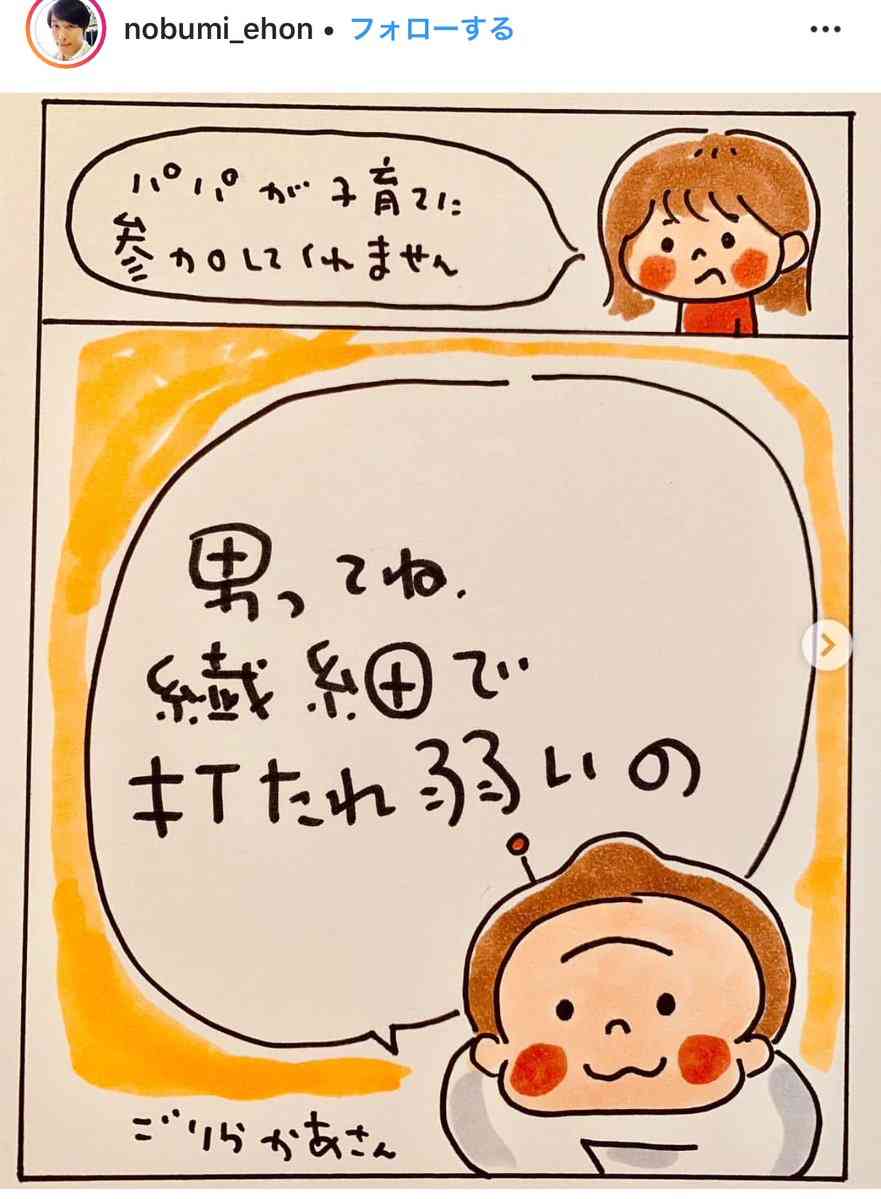 nobumi_ehon • フォローする
パパが子育てに
参加してくれません
男ってね、
繊細で
打たれ弱いの
ごりらかあさん